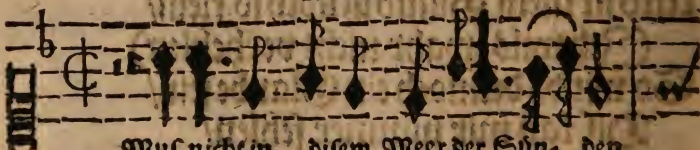 Mus nicht in disem Meer der Sün- den